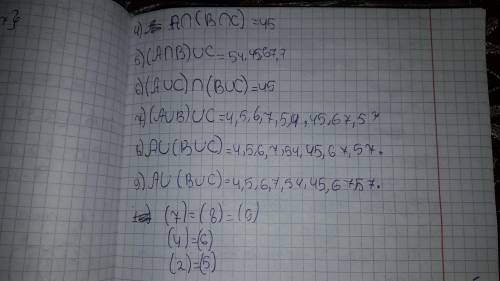 4) A∩(B∩C)=45
5) (A∩B)∪C=54,45,67,7
6) (A∪C)∩(B∪C)=45
7) (A∪B)∪C=4,5,6,7,54,45,67,57
8) A∪(B∪C)=4,5,6,7,54,45,67,57.
9) A∪(B∪C)=4,5,6,7,54,45,67,57.
(7)=(8)=(9)
(4)=(6)
(2)=(5)